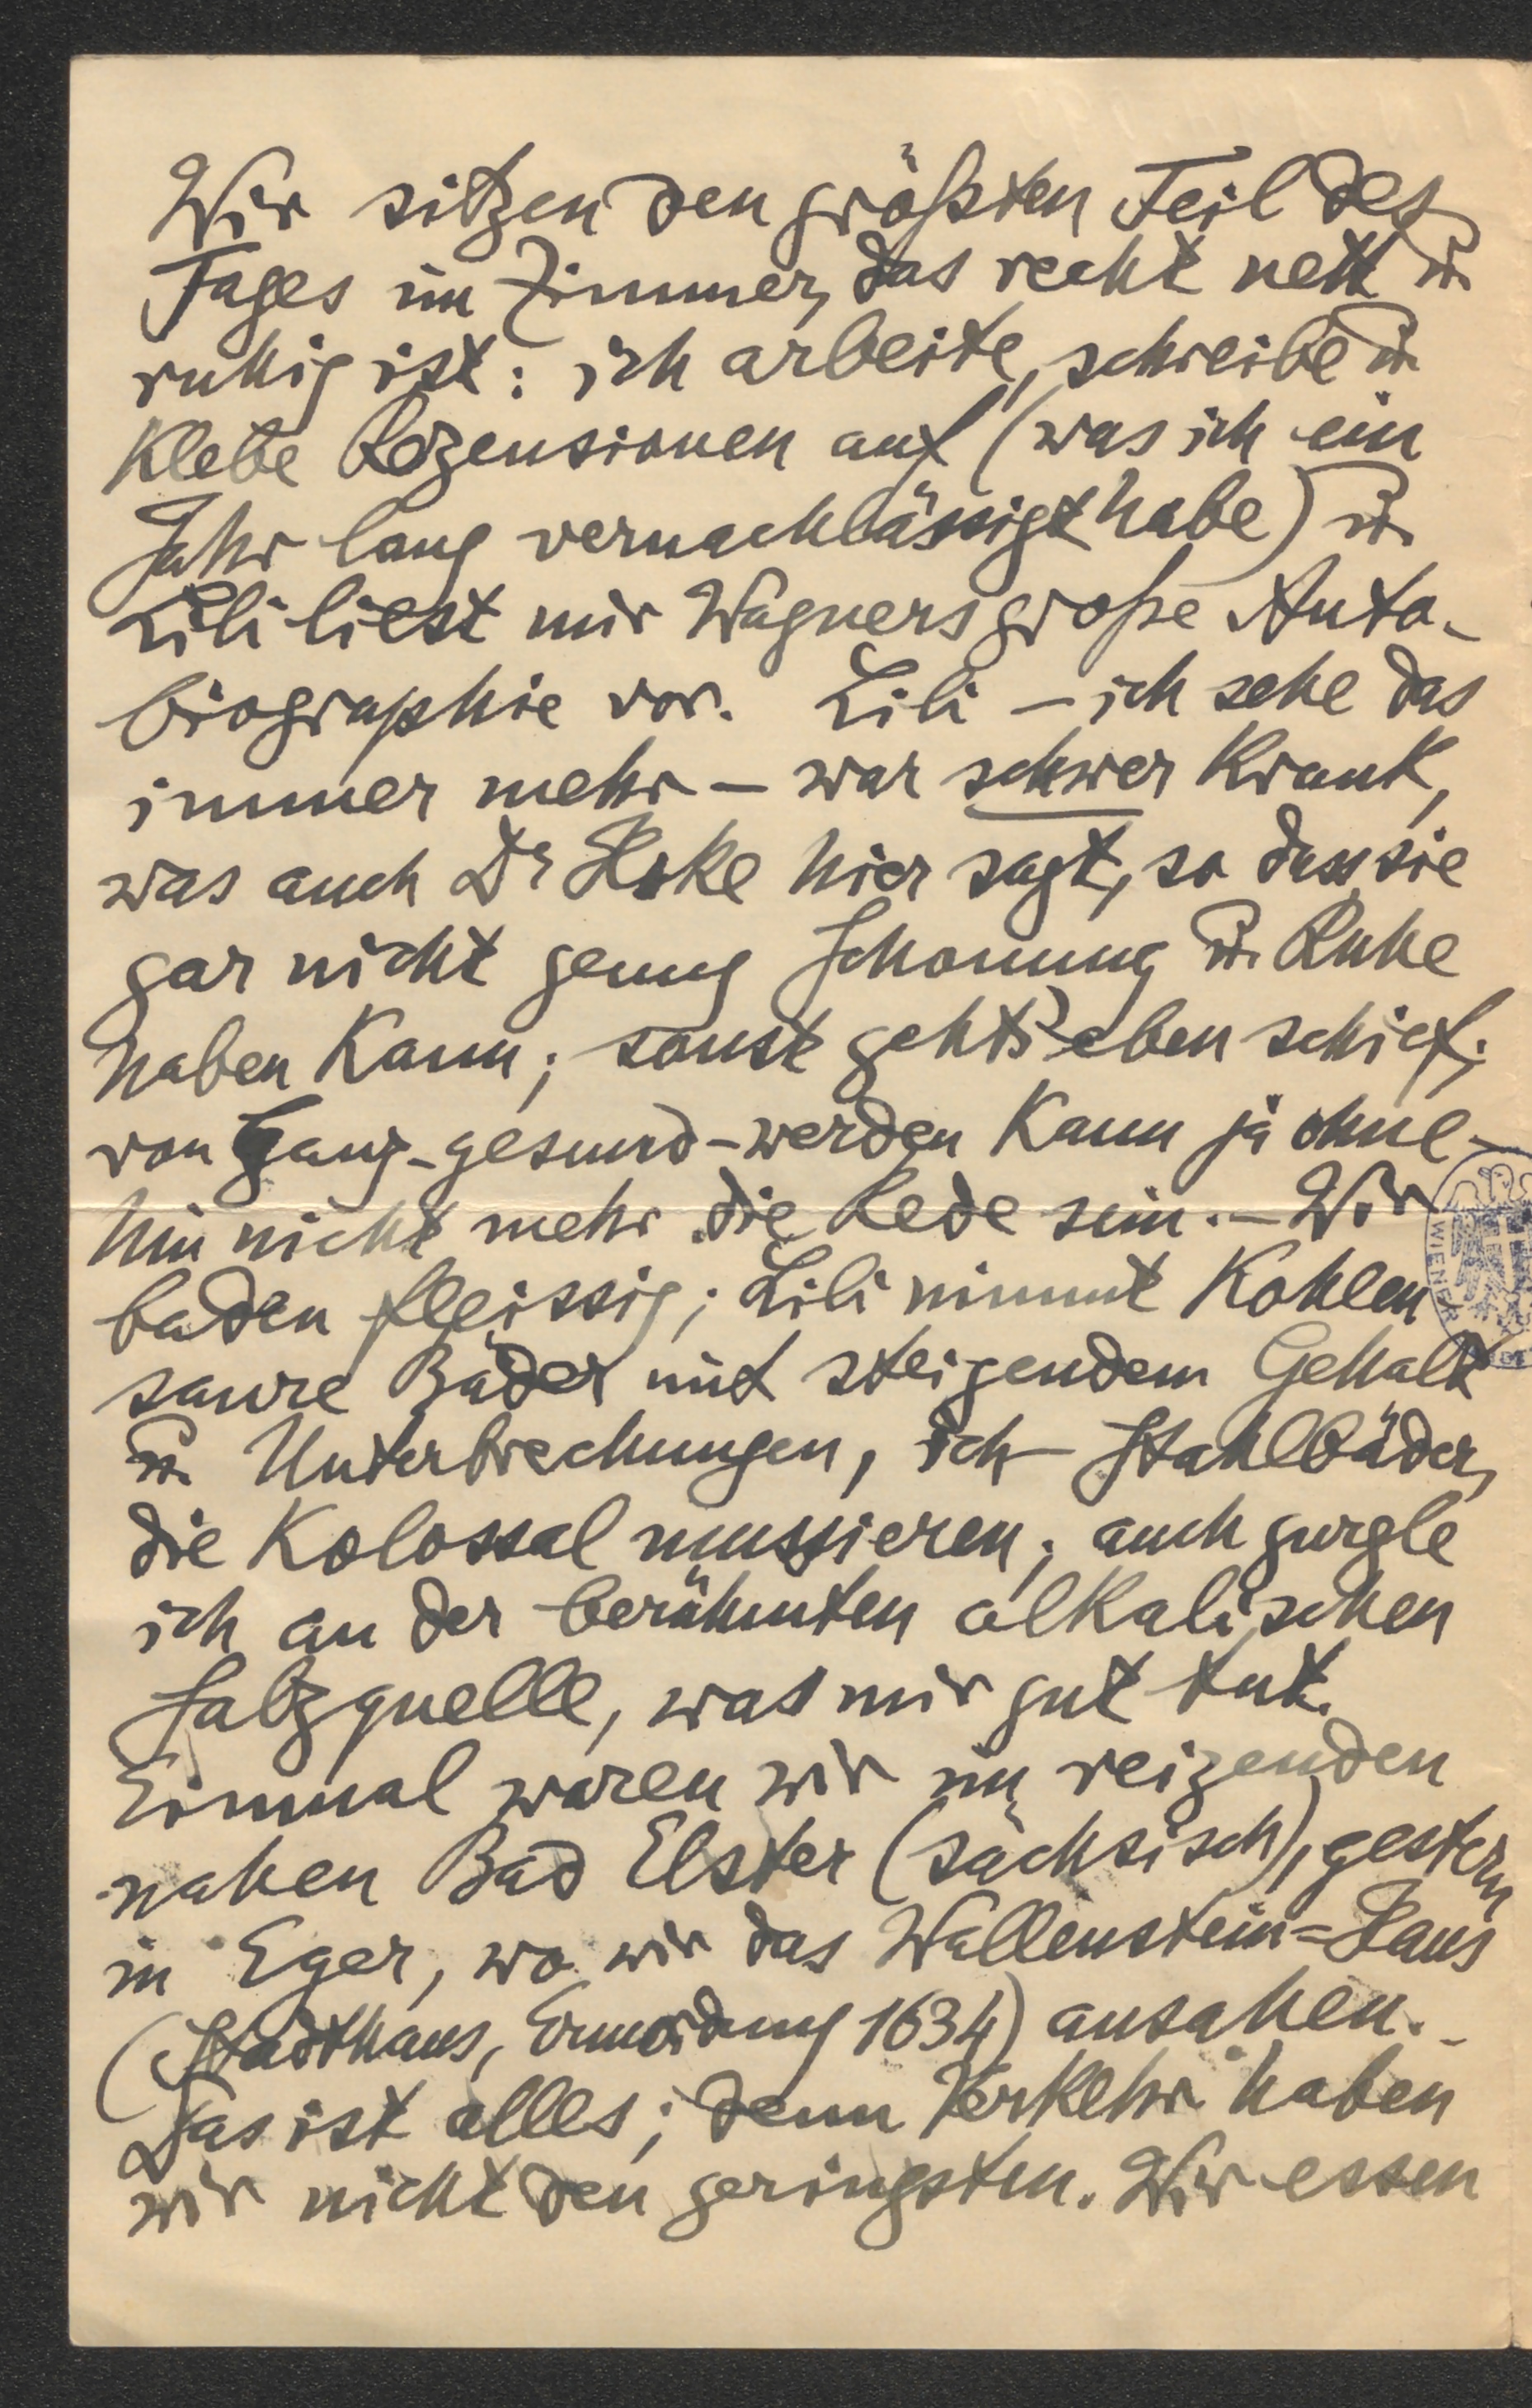 Wir sitzen den größten Teil des
Tages im Zimmer, das recht nett u.
ruhig ist: ich arbeite, schreibe u.
klebe Rezensionen auf (was ich ein
Jahr lang vernachlässigt habe) u.
Lili liest mir Wagners große Auto-
biographie vor. Lili – ich sehe das
immer mehr – war schwer krank,
was auch Dr hier sagt, so dass sie
gar nicht genug Schonung u. Ruhe
haben kann; sonst geht's eben schief;
von Ganz-gesund-werden kann ja ohne-
hin nicht mehr die Rede sein. – Wir
baden fleissig; Lili nimmt Kohlen
saure Bäder mit steigendem Gehalt
u. Unterbrechungen, ich Stahlbäder,
die kolossal mussieren; auch gurgle
ich an der berühmten alkalischen
Salzquelle, was mir gut tut.
Einmal waren wir im reizenden
nahen Bad Elster (sächsisch), gestern
in Eger, wo wir das Wallenstein=Haus
(Stadthaus, Ermordung 1634) ansahen. –
Das ist alles; denn Verkehr haben
wir nicht den geringsten. Wir essen
WIEN